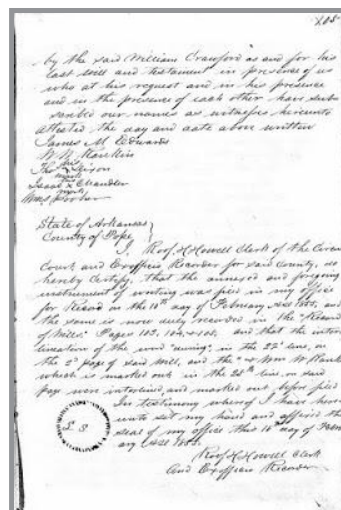 105
by the said William Crawford as and for his
last will and testament in presence of us
who at his request and in his presence
and in the presence of each other have subs
scribed our names as witnesses hereunto
attested the day and date above written
James M Edwards
W W Rankin
Tho his mark Dixon
Isaac his X mark Chandler
Wm
State of Arkansas }
County of Pope }
I, Roof. H Howell Clerk of the Circuit
Court and Exofficio Recorder for said County, do
hereby Certify, that the annexed and foregoing
instrument of writing was filed in my office
for Record on the 10th day of February 1885, and
the same is now duly recorded in the "Record
of Wills." Pages 103, 104 & 105, and that the inter
lineation of the word in the 27" line, on
the 2" page of said Will, and the "& Wm W Rankin
which is marked out in the 28th line on said
page were interlined, and marked out before filed
In testimony whereof I have here
unto set my hand and affixed the
seal of my office this 10th day of Febru
ary 1885.
L S
Roof. H Howell Clerk
And Exofficio Recorder